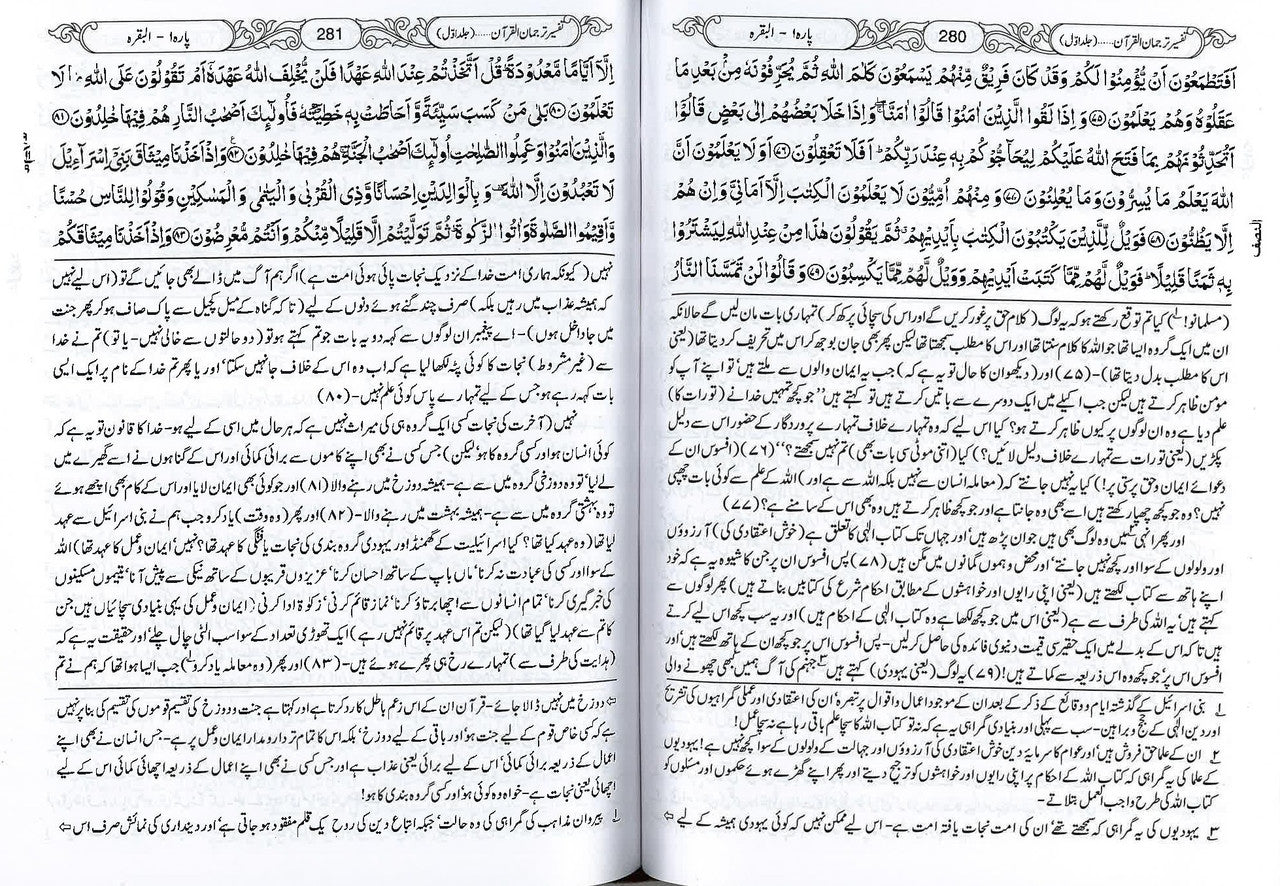 تفسیر ترجمان القرآن.....(جلد اوّل)
280
پارہ ۱ - البقرہ
اَفَتَطْمَعُوْنَ اَنْ يُّؤْمِنُوْا لَكُمْ وَقَدْ كَانَ فَرِيْقٌ مِّنْهُمْ يَسْمَعُوْنَ كَلٰمَ اللّٰهِ ثُمَّ يُحَرِّفُوْنَهٗ مِنْۢ بَعْدِ مَا
عَقَلُوْهُ وَهُمْ يَعْلَمُوْنَ ﴿۷۵﴾ وَ اِذَا لَقُوا الَّذِيْنَ اٰمَنُوْا قَالُوْٓا اٰمَنَّا ۚۖ وَاِذَا خَلَا بَعْضُهُمْ اِلٰى بَعْضٍ قَالُوْٓا
اَتُحَدِّثُوْنَهُمْ بِمَا فَتَحَ اللّٰهُ عَلَيْكُمْ لِيُحَآجُّوْكُمْ بِهٖ عِنْدَ رَبِّكُمْ ؕ اَفَلَا تَعْقِلُوْنَ ﴿۷۶﴾ اَوَ لَا يَعْلَمُوْنَ اَنَّ
اللّٰهَ يَعْلَمُ مَا يُسِرُّوْنَ وَمَا يُعْلِنُوْنَ ﴿۷۷﴾ وَ مِنْهُمْ اُمِّيُّوْنَ لَا يَعْلَمُوْنَ الْكِتٰبَ اِلَّآ اَمَانِيَّ وَاِنْ هُمْ
اِلَّا يَظُنُّوْنَ ﴿۷۸﴾ فَوَيْلٌ لِّلَّذِيْنَ يَكْتُبُوْنَ الْكِتٰبَ بِاَيْدِيْهِمْ ۤ ثُمَّ يَقُوْلُوْنَ هٰذَا مِنْ عِنْدِ اللّٰهِ لِيَشْتَرُوْا
بِهٖ ثَمَنًا قَلِيْلًا ؕ فَوَيْلٌ لَّهُمْ مِّمَّا كَتَبَتْ اَيْدِيْهِمْ وَوَيْلٌ لَّهُمْ مِّمَّا يَكْسِبُوْنَ ﴿۷۹﴾ وَ قَالُوْا لَنْ تَمَسَّنَا النَّارُ
النصف
(مسلمانو!) کیا تم توقع رکھتے ہو کہ یہ لوگ (کلامِ حق پر غور کریں گے اور اس کی سچائی پرکھ کر) تمہاری بات مان لیں گے حالانکہ
ان میں ایک گروہ ایسا تھا جو اللہ کا کلام سنتا تھا اور اس کا مطلب سمجھتا تھا لیکن پھر بھی جان بوجھ کر اس میں تحریف کر دیتا تھا (یعنی
اس کا مطلب بدل دیتا تھا)۔ (۷۵) اور (دیکھو ان کا حال تو یہ ہے کہ) جب یہ ایمان والوں سے ملتے ہیں‘ تو اپنے آپ کو
مؤمن ظاہر کرتے ہیں لیکن جب اکیلے میں ایک دوسرے سے باتیں کرتے ہیں تو کہتے ہیں ”جو کچھ تمہیں خدا نے (تورات کا)
علم دیا ہے وہ ان لوگوں پر کیوں ظاہر کرتے ہو؟ کیا اس لیے کہ وہ تمہارے خلاف تمہارے پروردگار کے حضور اس سے دلیل
پکڑیں (یعنی تورات سے تمہارے خلاف دلیل لائیں؟) کیا (اتنی موٹی سی بات بھی) تم نہیں سمجھتے؟“ (۷۶) (افسوس ان کے
دعوائے ایمان و حق پرستی پر!) کیا یہ نہیں جانتے کہ (معاملہ انسان سے نہیں بلکہ اللہ سے ہے اور) اللہ کے علم سے کوئی بات چھپی
نہیں؟ وہ جو کچھ چھپا رکھتے ہیں اسے بھی وہ جانتا ہے اور جو کچھ ظاہر کرتے ہیں وہ بھی اس کے سامنے ہے؟ (۷۷)
اور پھر انہی میں وہ لوگ بھی ہیں جو ان پڑھ ہیں‘ اور جہاں تک کتاب الٰہی کا تعلق ہے (خوش اعتقادی کی) آرزوؤں
اور ولولوں کے سوا اور کچھ نہیں جانتے‘ اور محض وہموں گمانوں میں مگن ہیں (۷۸) پس افسوس ان پر جن کا شیوہ یہ ہے کہ خود
اپنے ہاتھ سے کتاب لکھتے ہیں (یعنی اپنی رایوں اور خواہشوں کے مطابق احکام شرع کی کتابیں بناتے ہیں) پھر لوگوں سے
کہتے ہیں‘ یہ اللہ کی طرف سے ہے (یعنی اس میں جو کچھ لکھا ہے وہ کتاب الٰہی کے احکام ہیں) اور یہ سب کچھ اس لیے کرتے
ہیں تا کہ اس کے بدلے میں ایک حقیر سی قیمت دنیوی فائدہ کی حاصل کر لیں۔ پس افسوس اس پر جو کچھ ان کے ہاتھ لکھتے ہیں‘ اور
افسوس اس پر‘ جو کچھ وہ اس ذریعہ سے کماتے ہیں! (۷۹) یہ لوگ (یعنی یہودی) کہتے ہیں جہنم کی آگ ہمیں کبھی چھونے والی
۱ بنی اسرائیل کے گذشتہ ایام و وقائع کے ذکر کے بعد ان کے موجود اعمال و اقوال پر تبصرہ‘ ان کی اعتقادی اور عملی گمراہیوں کی تشریح
اور دین الٰہی کے حجج و براہین۔ سب سے پہلی اور بنیادی گمراہی یہ ہے کہ نہ تو کتاب اللہ کا سچا علم باقی رہا ہے نہ سچا عمل!
۲ ان کے علما حق فروش ہیں‘ اور عوام کا سرمایۂ دین خوش اعتقادی کی آرزوؤں اور جہالت کے ولولوں کے سوا کچھ نہیں ہے! یہودیوں
کے علما کی یہ گمراہی کہ کتاب اللہ کے احکام پر اپنی رایوں اور خواہشوں کو ترجیح دیتے اور پھر اپنے گھڑے ہوئے حکموں اور مسئلوں کو
کتاب اللہ کی طرح واجب العمل بتلاتے۔
۳ یہودیوں کی یہ گمراہی کہ سمجھتے تھے‘ ان کی امت نجات یافتہ امت ہے۔ اس لیے ممکن نہیں کہ کوئی یہودی ہمیشہ کے لیے ⇦
تفسیر ترجمان القرآن.....(جلد اوّل)
281
پارہ ۱ - البقرہ
اِلَّآ اَيَّامًا مَّعْدُوْدَةً ؕ قُلْ اَتَّخَذْتُمْ عِنْدَ اللّٰهِ عَهْدًا فَلَنْ يُّخْلِفَ اللّٰهُ عَهْدَهٗٓ اَمْ تَقُوْلُوْنَ عَلَى اللّٰهِ مَا لَا
تَعْلَمُوْنَ ﴿۸۰﴾ بَلٰى مَنْ كَسَبَ سَيِّئَةً وَّ اَحَاطَتْ بِهٖ خَطِيْٓـَٔتُهٗ فَاُولٰٓئِكَ اَصْحٰبُ النَّارِ ۚ هُمْ فِيْهَا خٰلِدُوْنَ ﴿۸۱﴾
وَالَّذِيْنَ اٰمَنُوْا وَعَمِلُوا الصّٰلِحٰتِ اُولٰٓئِكَ اَصْحٰبُ الْجَنَّةِ ۚ هُمْ فِيْهَا خٰلِدُوْنَ ﴿۸۲﴾ وَاِذْ اَخَذْنَا مِيْثَاقَ بَنِيْٓ اِسْرَآءِيْلَ
لَا تَعْبُدُوْنَ اِلَّا اللّٰهَ ۟ وَ بِالْوَالِدَيْنِ اِحْسَانًا وَّذِي الْقُرْبٰى وَ الْيَتٰمٰى وَ الْمَسٰكِيْنِ وَقُوْلُوْا لِلنَّاسِ حُسْنًا
وَّاَقِيْمُوا الصَّلٰوةَ وَاٰتُوا الزَّكٰوةَ ؕ ثُمَّ تَوَلَّيْتُمْ اِلَّا قَلِيْلًا مِّنْكُمْ وَاَنْتُمْ مُّعْرِضُوْنَ ﴿۸۳﴾ وَاِذْ اَخَذْنَا مِيْثَاقَكُمْ
نہیں (کیونکہ ہماری امت خدا کے نزدیک نجات پائی ہوئی امت ہے) اگر ہم آگ میں ڈالے بھی جائیں گے تو (اس لیے نہیں
کہ ہمیشہ عذاب میں رہیں بلکہ) صرف چند گنے ہوئے دنوں کے لیے (تا کہ گناہ کے میل کچیل سے پاک صاف ہو کر پھر جنت
میں جا داخل ہوں)۔ اے پیغمبر ان لوگوں سے کہہ دو یہ بات جو تم کہتے ہو تو (دو حالتوں سے خالی نہیں۔ یا تو) تم نے خدا
سے (غیر مشروط) نجات کا کوئی پٹہ لکھا لیا ہے کہ اب وہ اس کے خلاف جا نہیں سکتا‘ اور یا پھر تم خدا کے نام پر ایک ایسی
بات کہہ رہے ہو جس کے لیے تمہارے پاس کوئی علم نہیں۔ (۸۰)
نہیں (آخرت کی نجات کسی ایک گروہ ہی کی میراث نہیں ہے کہ ہر حال میں اسی کے لیے ہو۔ خدا کا قانون تو یہ ہے کہ
کوئی انسان ہو اور کسی گروہ کا ہو‘ لیکن) جس کسی نے بھی اپنے کاموں سے برائی کمائی اور اس کے گناہوں نے اسے گھیرے میں
لے لیا‘ تو وہ دوزخی گروہ میں سے ہے۔ ہمیشہ دوزخ میں رہنے والا (۸۱) اور جو کوئی بھی ایمان لایا اور اس کے کام بھی اچھے ہوئے
تو وہ بہشتی گروہ میں سے ہے۔ ہمیشہ بہشت میں رہنے والا۔ (۸۲) اور پھر (وہ وقت) یاد کرو جب ہم نے بنی اسرائیل سے عہد
لیا تھا (وہ عہد کیا تھا؟ کیا اسرائیلیت کے گھمنڈ اور یہودی گروہ بندی کی نجات یافتگی کا عہد تھا؟ نہیں‘ ایمان و عمل کا عہد تھا) اللہ
کے سوا اور کسی کی عبادت نہ کرنا‘ ماں باپ کے ساتھ احسان کرنا‘ عزیزوں قریبوں کے ساتھ نیکی سے پیش آنا‘ یتیموں مسکینوں
کی خبر گیری کرنا‘ تمام انسانوں سے اچھا برتاؤ کرنا‘ نماز قائم کرنی‘ زکوٰۃ ادا کرنی (ایمان و عمل کی یہی بنیادی سچائیاں ہیں جن
کا تم سے عہد لیا گیا تھا) (لیکن تم اس عہد پر قائم نہیں رہے) ایک تھوڑی تعداد کے سوا سب الٹی چال چلے‘ اور حقیقت یہ ہے کہ
(ہدایت کی طرف سے) تمہارے رخ ہی پھرے ہوئے ہیں۔ (۸۳) اور پھر (وہ معاملہ یاد کرو) جب ایسا ہوا تھا کہ ہم نے تم
⇦ دوزخ میں نہیں ڈالا جائے۔ قرآن ان کے اس زعم باطل کا رد کرتا ہے اور کہتا ہے جنت و دوزخ کی تقسیم قوموں کی تقسیم کی بنا پر نہیں
ہے کہ کسی خاص قوم کے لیے جنت ہو‘ اور باقی کے لیے دوزخ‘ بلکہ اس کا تمام تر دارومدار ایمان و عمل پر ہے۔ جس انسان نے بھی اپنے
اعمال کے ذریعہ برائی کمائی‘ اس کے لیے برائی یعنی عذاب ہے اور جس کسی نے بھی اپنے اعمال کے ذریعہ اچھائی کمائی اس کے لیے
اچھائی یعنی نجات ہے۔ خواہ وہ کوئی ہو‘ اور کسی گروہ بندی کا ہو!
۱ پیروانِ مذاہب کی گمراہی کی وہ حالت‘ جبکہ اتباعِ دین کی روح یک قلم مفقود ہو جاتی ہے‘ اور دینداری کی نمائش صرف اس ⇦